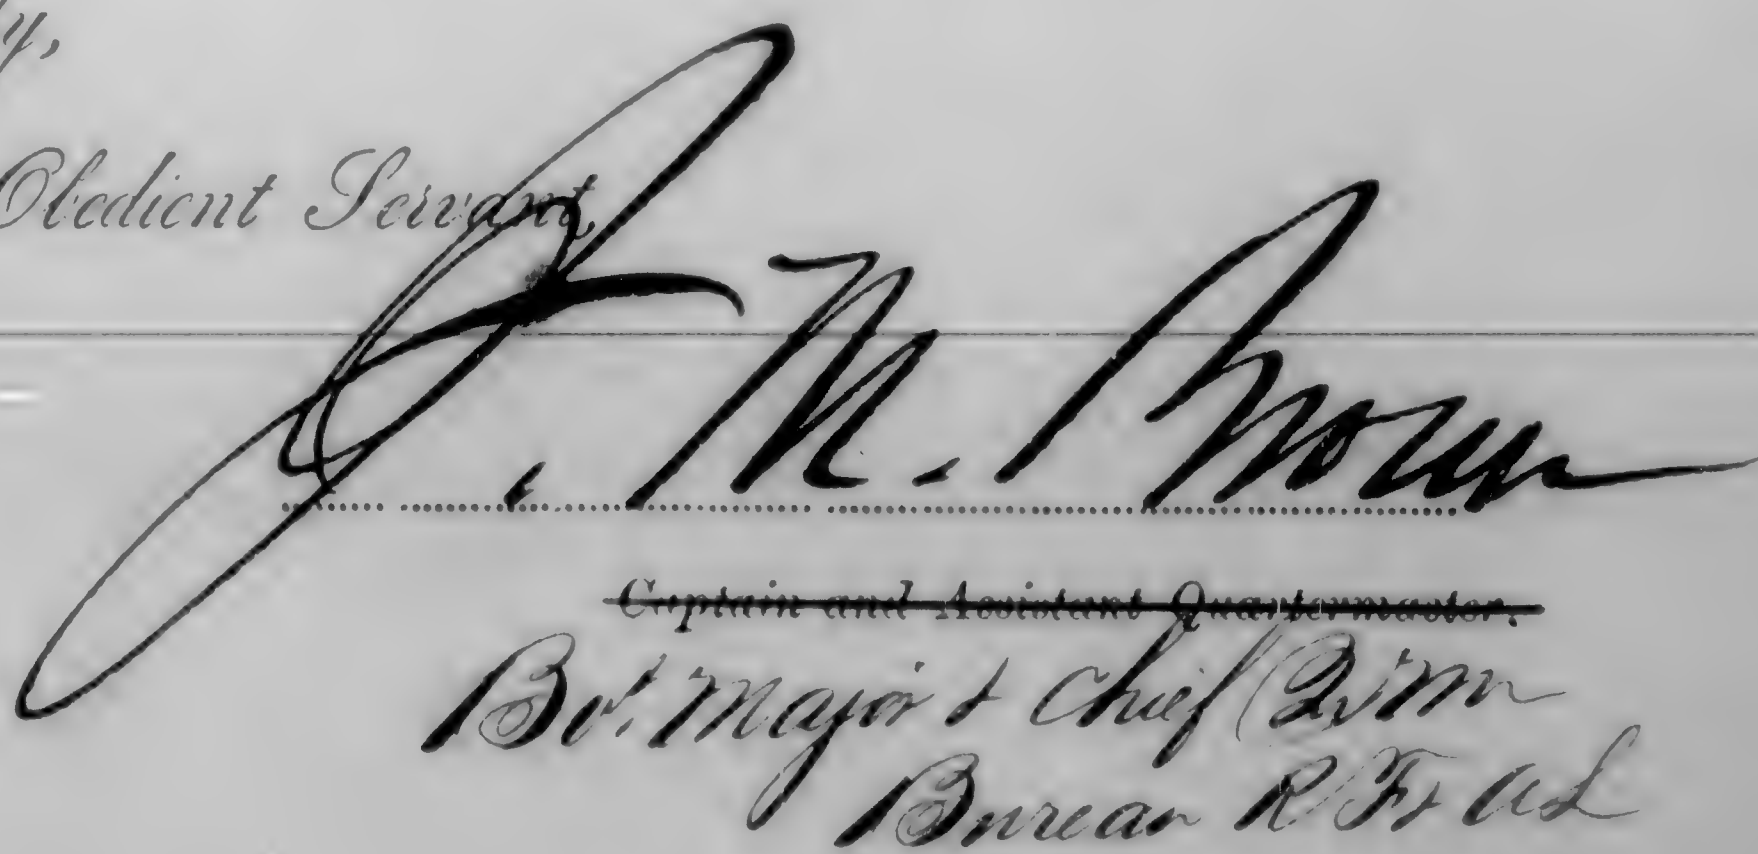 y,
Obedient Servant,
J. M. Brown
Captain and Assistant Quartermaster.
Bvt. Major & Chief Qr M
Bureau R F & A L